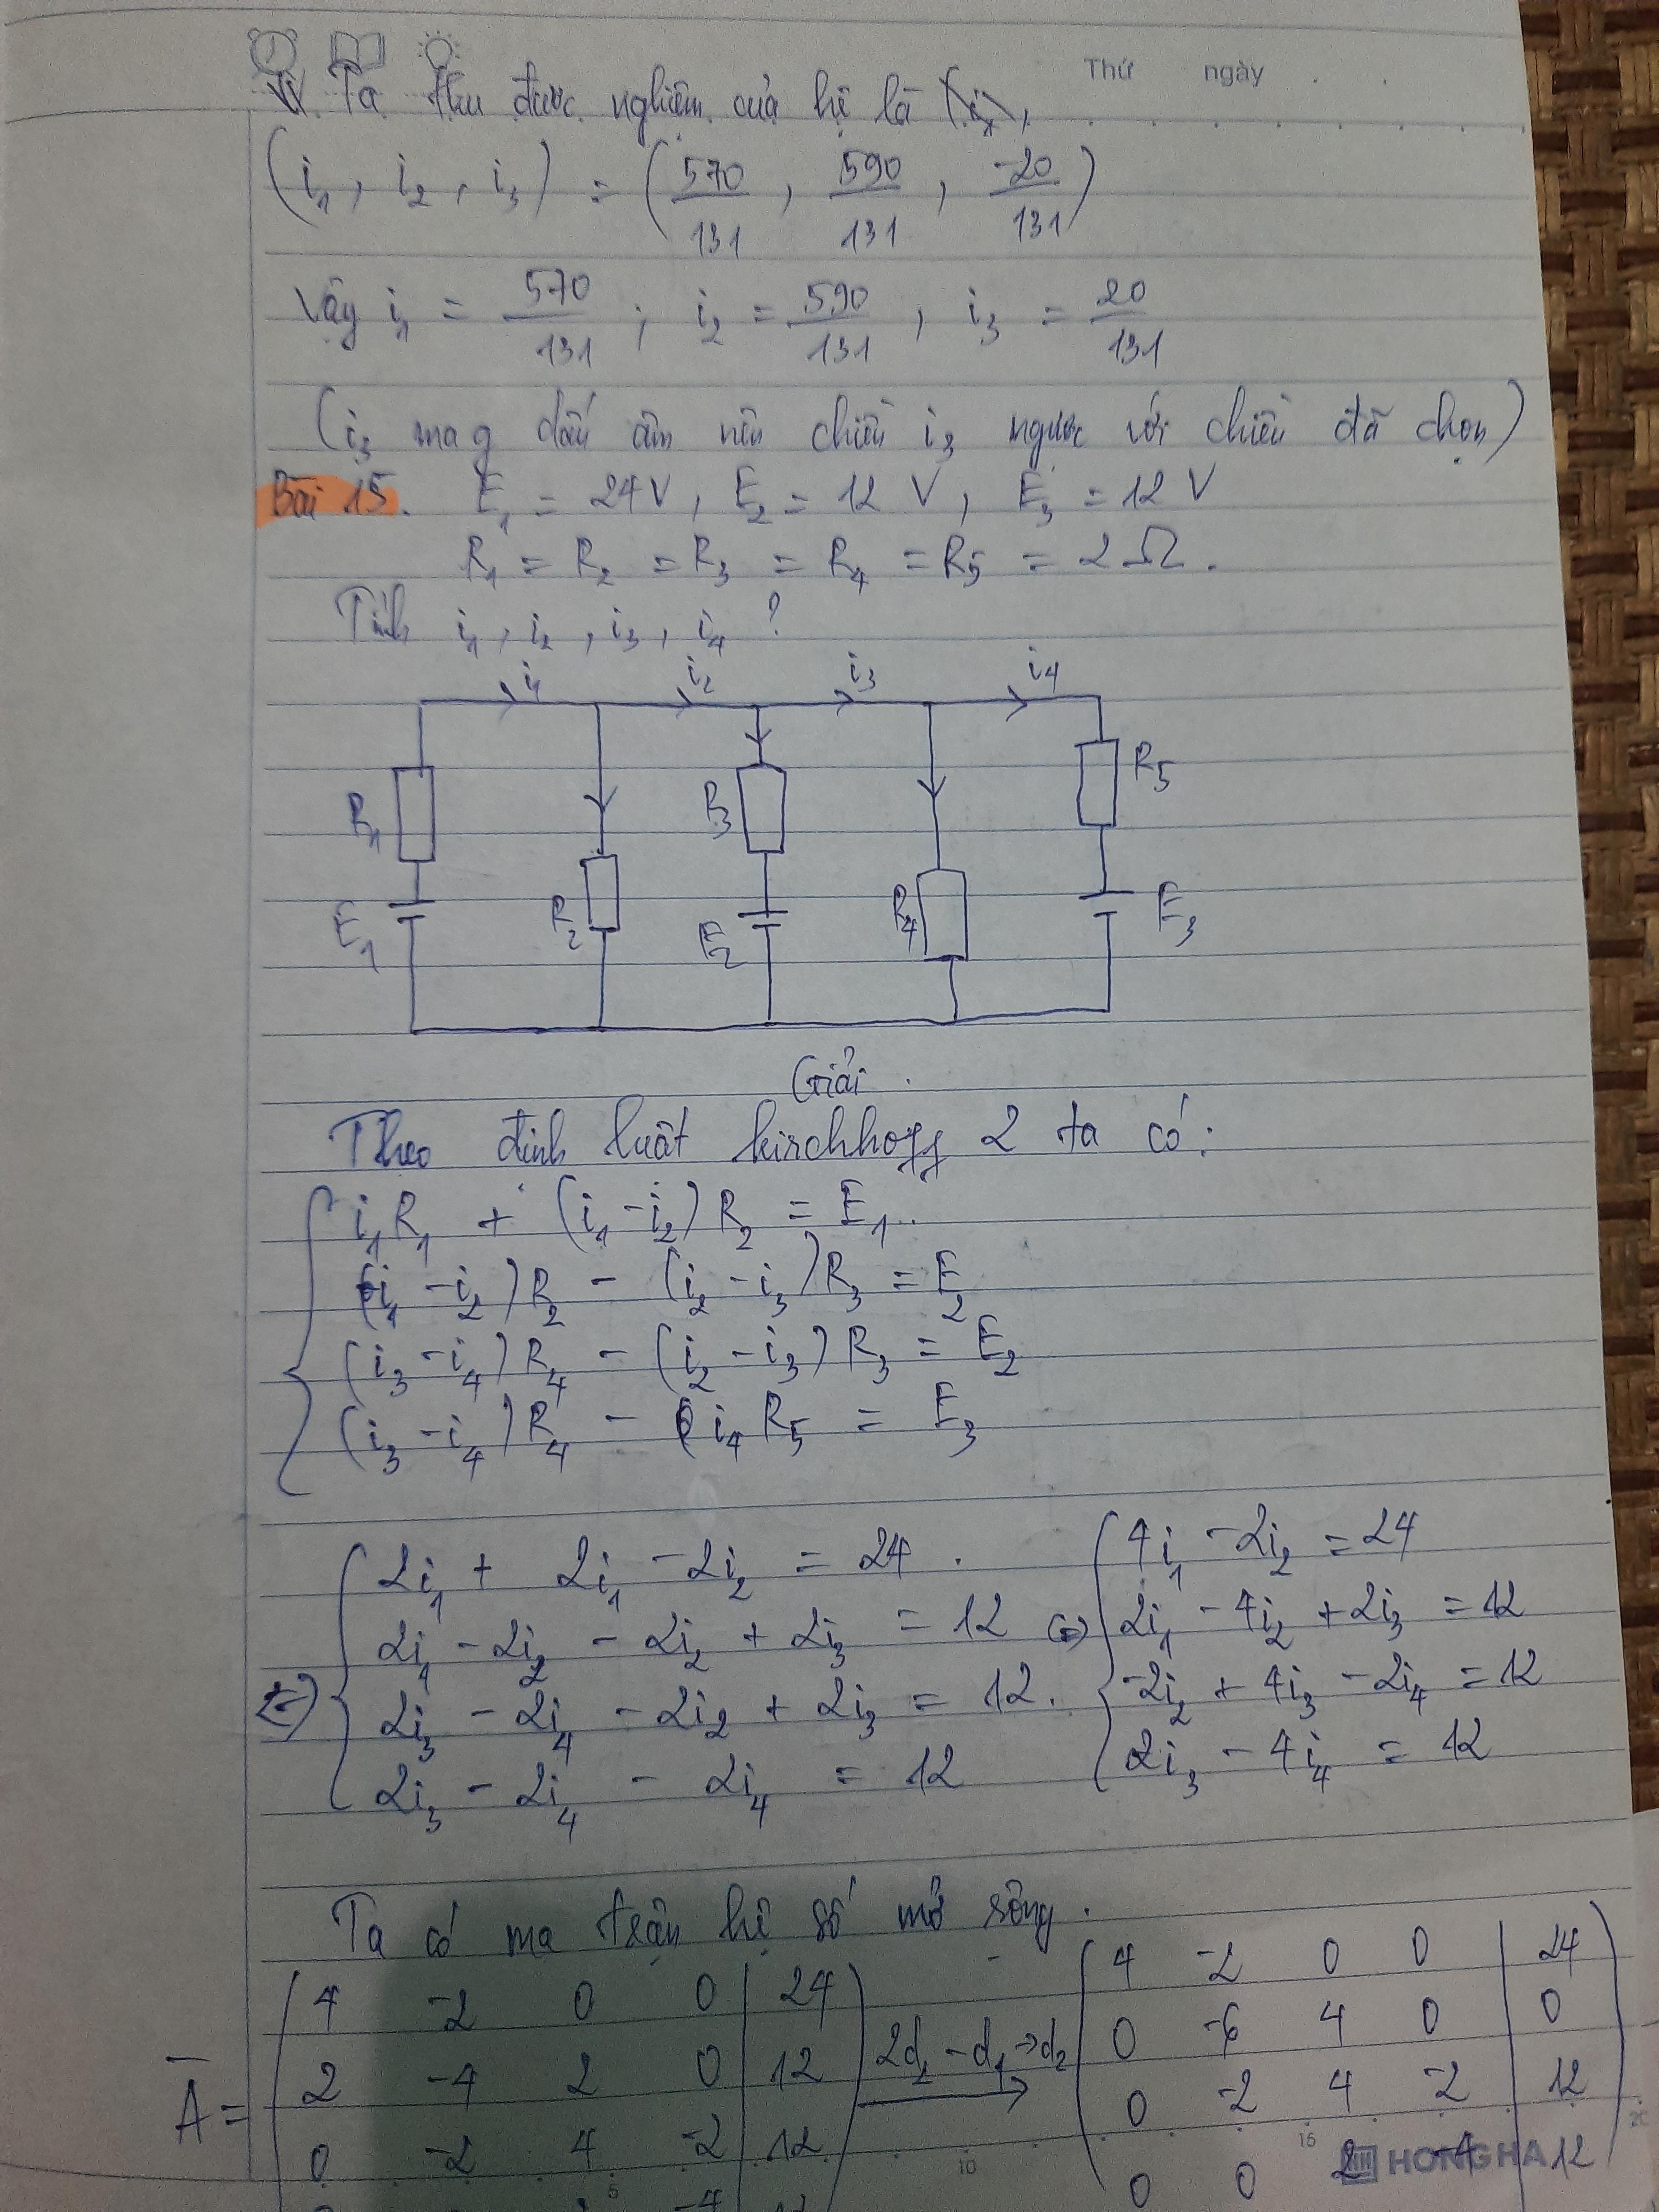 Thứ ngày
Ta thu được nghiệm của hệ là
(i₁, i₂, i₃) = (570/131, 590/131, -20/131)
Vậy i₁ = 570/131 ; i₂ = 590/131, i₃ = 20/131
(i₃ mag dấu âm nên chiều i₃ ngược với chiều đã chọn)
Bài 15. E₁ = 24V, E₂ = 12 V, E₃ = 12 V
R₁ = R₂ = R₃ = R₄ = R₅ = 2Ω.
Tính i₁, i₂, i₃, i₄ ?
i₁ i₂ i₃ i₄
R₁ R₂ R₃ R₄ R₅
E₁ E₂ E₃
Giải.
Theo định luật kirchhoff 2 ta có:
i₁R₁ + (i₁ - i₂)R₂ = E₁.
(i₁ - i₂)R₂ - (i₂ - i₃)R₃ = E₂
(i₃ - i₄)R₄ - (i₂ - i₃)R₃ = E₂
(i₃ - i₄)R₄ - i₄R₅ = E₃
2i₁ + 2i₁ - 2i₂ = 24. 4i₁ - 2i₂ = 24
2i₁ - 2i₂ - 2i₂ + 2i₃ = 12 ⇔ 2i₁ - 4i₂ + 2i₃ = 12
⇔ 2i₃ - 2i₄ - 2i₂ + 2i₃ = 12. -2i₂ + 4i₃ - 2i₄ = 12
2i₃ - 2i₄ - 2i₄ = 12 2i₃ - 4i₄ = 12
Ta có ma trận hệ số mở rộng.
4 -2 0 0 | 24 4 -2 0 0 | 24
Ā = 2 -4 2 0 | 12 2d₂ - d₁ → d₂ 0 -6 4 0 | 0
0 -2 4 -2 | 12 0 -2 4 -2 | 12
-4 12 0 0 2 -4 12
5 10 15 20
HONG HA